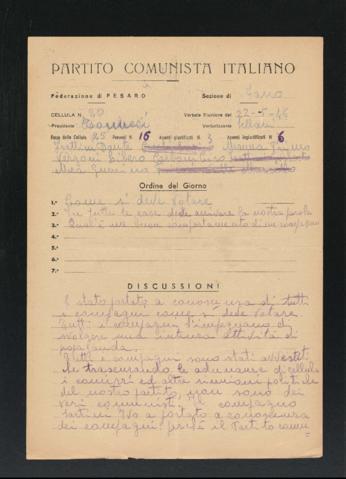 PARTITO COMUNISTA ITALIANO
Federazione di PESARO Sezione di Fano
CELLULA N. 20 Verbale Riunione del 22-5-46
Presidente Verbalizzante
Forza della Cellula 25 Presenti N. 16 Assenti giustificati N. 3 Assenti ingiustificati N. 6
Ordine del Giorno
1.° Come si deve Votare
2.° In tutte le case deve arrivare la nostra parola
3.° Qual'è un buon comportamento di un compagno
4.°
5.°
6.°
7.°
DISCUSSIONI
È stato portato a conoscenza di tutti
i compagni come si deve Votare.
Tutti i compagni s'impegnano di
svolgere una intensa attività di
propaganda.
Tutti i compagni sono stati avvertiti
che trascurando le adunanze di cellula
i comizi ed altre riunioni politiche
del nostro partito, non sono dei
veri comunisti. Il compagno
Ivo a portato a conoscenza
dei compagni perché il Partito comu=